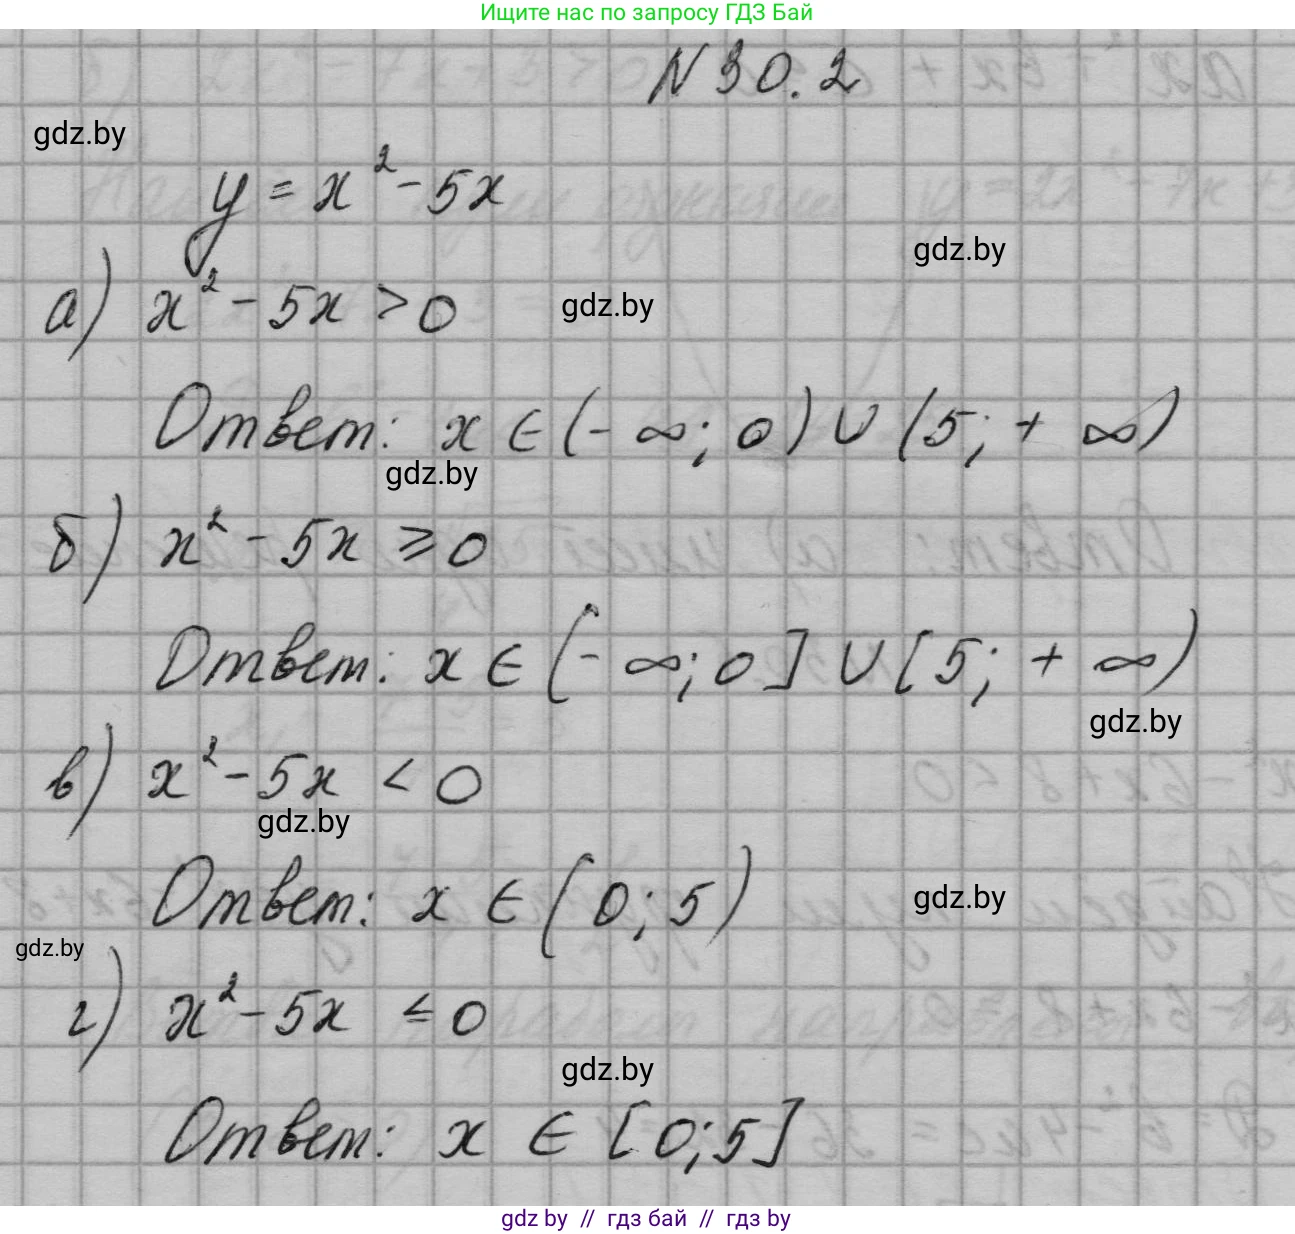 Ищите нас по запросу ГДЗ Бай
N 30.2
gdz.by
y = x² - 5x
gdz.by
а) x² - 5x > 0
gdz.by
Ответ: x ∈ (- ∞; 0) ∪ (5; + ∞)
gdz.by
б) x² - 5x ⩾ 0
Ответ: x ∈ (- ∞; 0] ∪ [5; + ∞)
gdz.by
в) x² - 5x < 0
gdz.by
Ответ: x ∈ (0; 5)
gdz.by
gdz.by
г) x² - 5x ≤ 0
gdz.by
Ответ: x ∈ [0; 5]
gdz by // гдз бай // гдз by